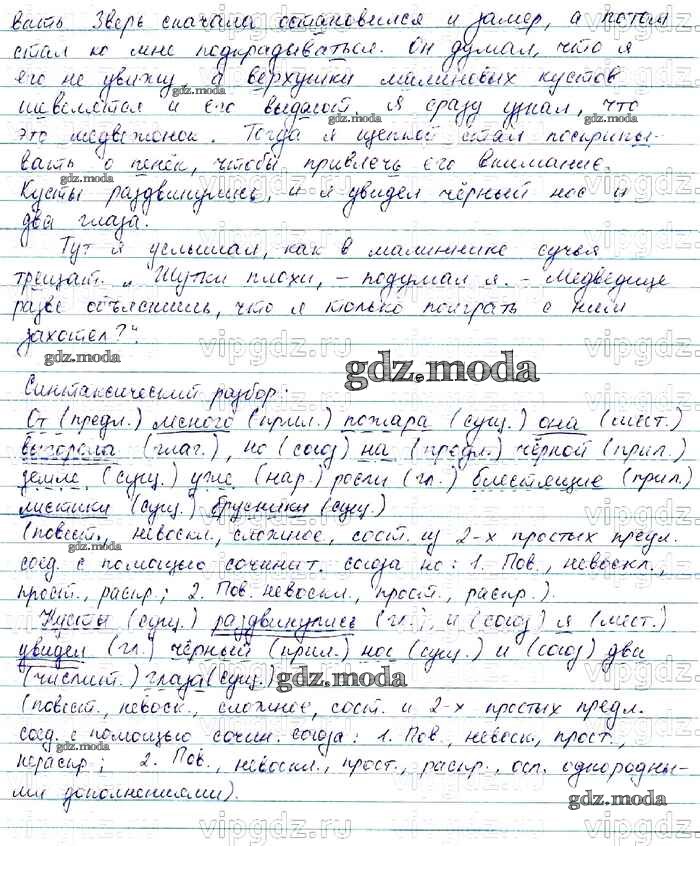 вать Зверь сначала остановился и замер, а потом
стал ко мне подкрадываться. Он думал, что я
его не увижу, а верхушки малиновых кустов
шевелятся и его выдают. Я сразу узнал, что
это медвежонок. Тогда я щепкой стал постукивать
о пенёк, чтобы привлечь его внимание.
Кусты раздвинулись, и я увидел чёрный нос и
два глаза.
Тут я услышал, как в малиннике сучья
трещат. „Шутки плохи, – подумал я. – Медведице
разве объяснишь, что я только поиграть с ним
захотел?"
gdz.moda
Синтаксический разбор:
От (предл.) лесного (прил.) пожара (сущ.) она (мест.)
выгорела (глаг.), но (союз) на (предл.) чёрной (прил.)
земле (сущ.) уже (нар.) росли (гл.) блестящие (прил.)
листики (сущ.) брусники (сущ.)
(повест., невоскл., сложное, сост. из 2-х простых предл.
соед. с помощью сочинит. союза но: 1. Пов., невоскл.,
прост., распр.; 2. Пов. невоскл., прост., распр.).
Кусты (сущ.) раздвинулись (гл.), и (союз) я (мест.)
увидел (гл.) чёрный (прил.) нос (сущ.) и (союз) два
(числит.) глаза (сущ.)
(повест., невоск., сложное, сост. и 2-х простых предл.
соед. с помощью сочин. союза: 1. Пов., невоск., прост.,
нераспр; 2. Пов., невоскл., прост., распр., осл. однородны-
ми дополнениями).